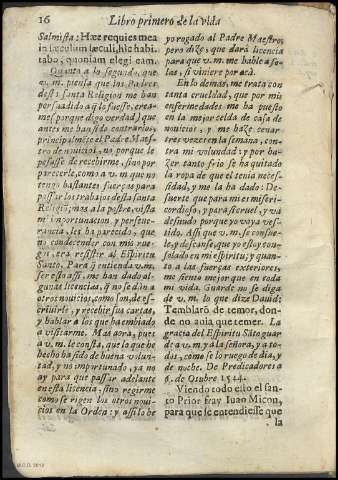 16 Libro primero de la vida
Salmista: Hæc requies mea
in sæculum sæculi, hic habi
tabo, quoniam elegi eam.
Quanto a lo segundo, que
v. m. piensa que los Padres
desta santa Religiõ me han
persuadido a q̃ lo fuesse, crea-
me (porque digo verdad) que
antes me han sido contrarios,
principalmẽte el Padre Maes
tro de nouicios, no porque le
pesasse de recebirme, sino por
parecerle, como a v. m. que no
tengo bastantes fuerças para
passar los trabajos desta santa
Religiõ; mas a la postre, vista
mi importunacion y perseue-
rancia, les ha parecido, que
no condecender con mis rue-
gos, era resistir al Espiritu
Santo. Para q̃ entienda v. m.
ser esto assi, me han dado al-
gunas licencias, q̃ no se dan a
otros nouicios, como son, de es-
criuirle, y recebir sus cartas,
y hablar a los que ha embiado
a visitarme. Mas aora, pues
a v. m. le consta, que lo que he
hecho ha sido de buena volun-
tad, y no importunado, ya no
ay para que passar adelante
en esta licencia, sino regirme
como se rigen los otros noui-
cios en la Orden; y assi lo he
yo rogado al Padre Maestro,
pero dize, que dará licencia
para que v. m. me hable a so-
las, si viniere por acà.
En lo demas, me trata con
tanta crueldad, que por mis
enfermedades me ha puesto
en la mejor celda de casa de
nouicios, y me haze cenar
tres vezes en la semana, con-
tra mi voluntad; y por ha-
zer tanto frio se ha quitado
la ropa de que el tenia neces-
sidad, y me la ha dado: De-
suerte que para mi es miseri-
cordioso, y para si cruel, y và
desnudo porque yo vaya ves-
tido. Assi que v. m. se consue-
le, y descanse, que yo estoy con-
solado en mi espiritu; y quan-
to a las fuerças exteriores,
me siento mejor que en toda
mi vida. Guarde no se diga
de v. m. lo que dize Dauid:
Temblarõ de temor, don-
de no auia que temer. La
gracia del Espiritu Sãto guar
de a v. m. y a la señora, y a to-
dos, como se lo ruego de dia, y
de noche. De Predicadores a
6. de Octubre 1544.
Viendo todo esto el san-
to Prior fray Iuan Micon,
para que se entendiesse que
la